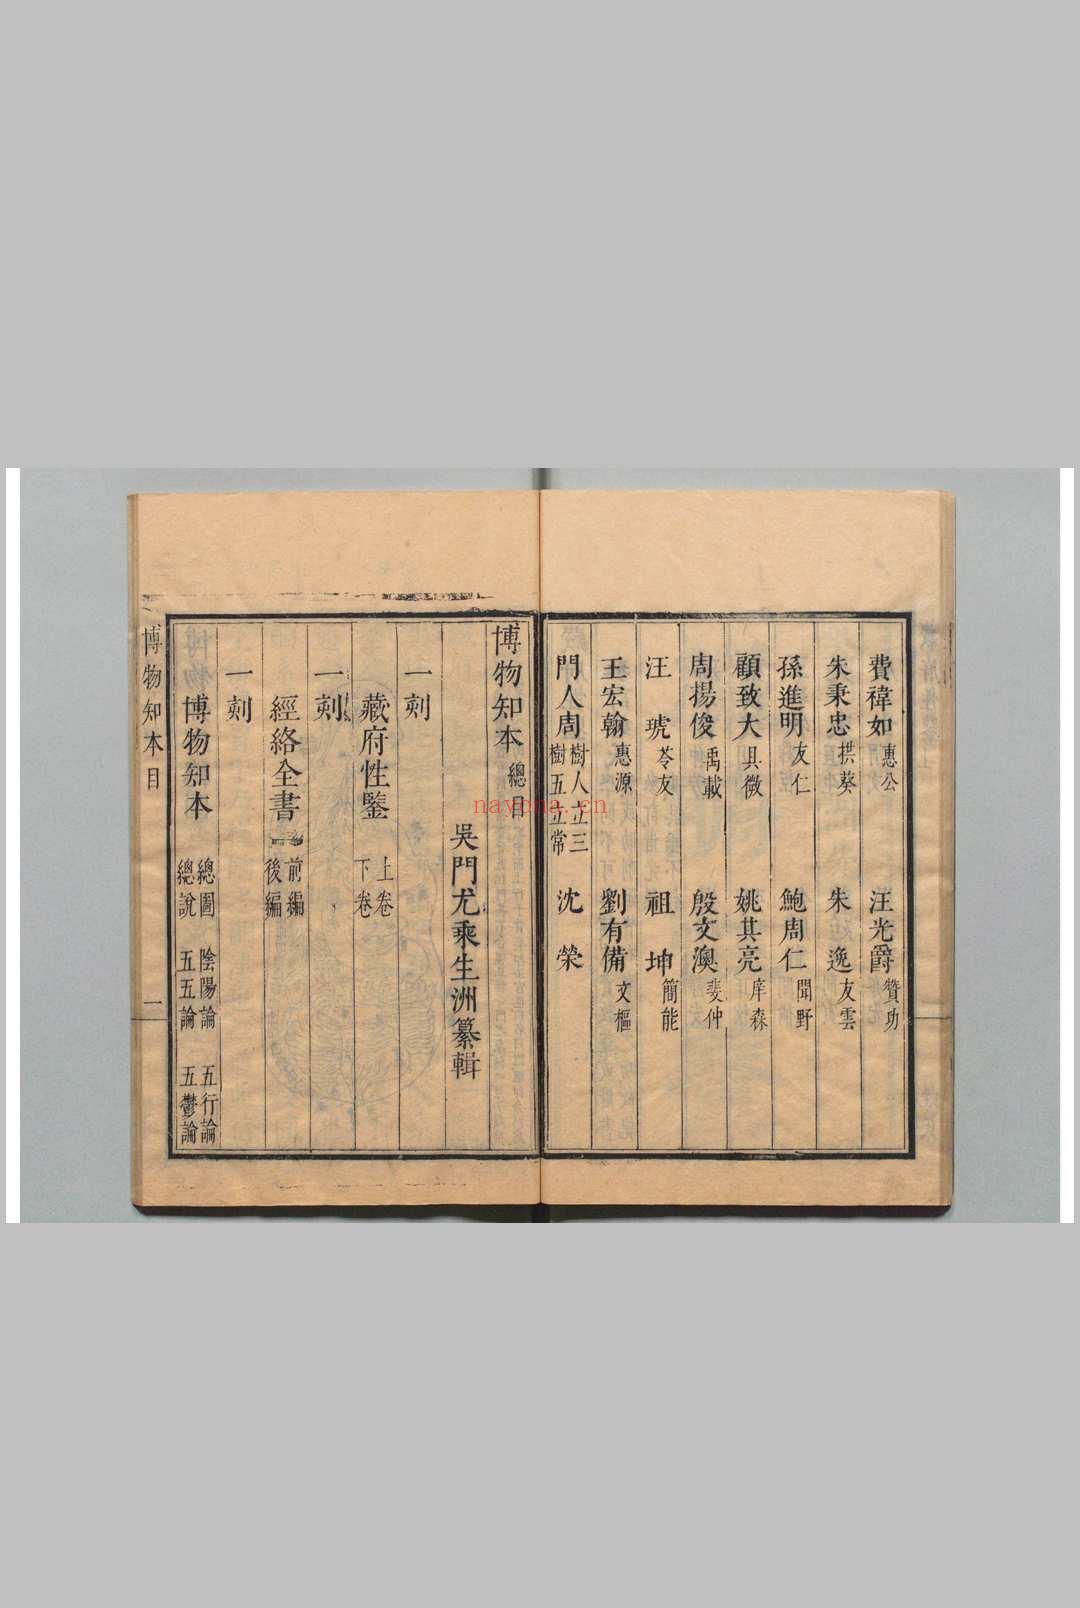 費禕如 惠公 汪光爵 贊功
朱秉忠 拱葵 朱逸 友雲
孫進明 友仁 鮑周仁 聞野
顧致大 具微 姚其亮 庠森
周揚俊 禹載 殷文澳 斐仲
汪琥 苓友 祖坤 簡能
王宏翰 惠源 劉有備 文樞
門人周 樹人立三 樹五立常 沈榮
博物知本 總目
吳門尤乘生洲纂輯
一刻
藏府性鑒 上卷 下卷
一刻
經絡全書 前編 後編
一刻
博物知本 總圖 總說 陰陽論 五五論 五行論 五鬱論
博物知本目 一
nayona.cn